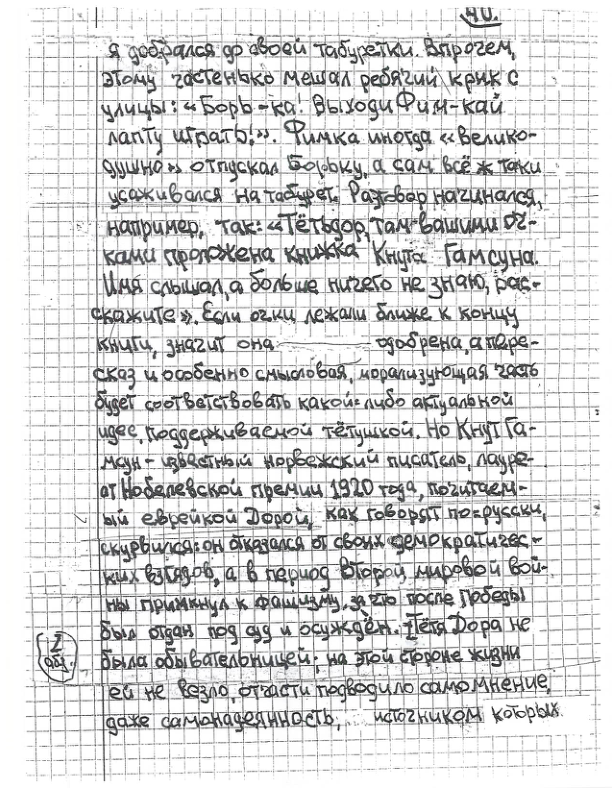 40.
я добрался до своей табуретки. Впрочем,
этому частенько мешал ребячий крик с
улицы: «Борь-ка! Выходи Фим-кай
лапту играть!». Фимка иногда «велико-
душно» отпускал Борьку, а сам всё ж таки
усаживался на табурет. Разговор начинался,
например, так: «Тётьдор, там вашими оч-
ками проложена книжка Кнута Гамсуна.
Имя слышал, а больше ничего не знаю, рас-
скажите». Если очки лежали ближе к концу
книги, значит она одобрена, а пере-
сказ и особенно смысловая, морализующая часть
будет соответствовать какой-либо актуальной
идее, поддерживаемой тётушкой. Но Кнут Га-
мсун - известный норвежский писатель, лауре-
ат Нобелевской премии 1920 года, почитаем-
ый еврейкой Дорой, как говорят по-русски,
скурвился: он отказался от своих демократичес-
ких взглядов, а в период Второй мировой вой-
ны примкнул к фашизму, за что после Победы
был отдан под суд и осуждён. Тётя Дора не
была обывательницей; на этой стороне жизни
ей не везло, отчасти подводило самомнение,
даже самонадеянность, источником которых